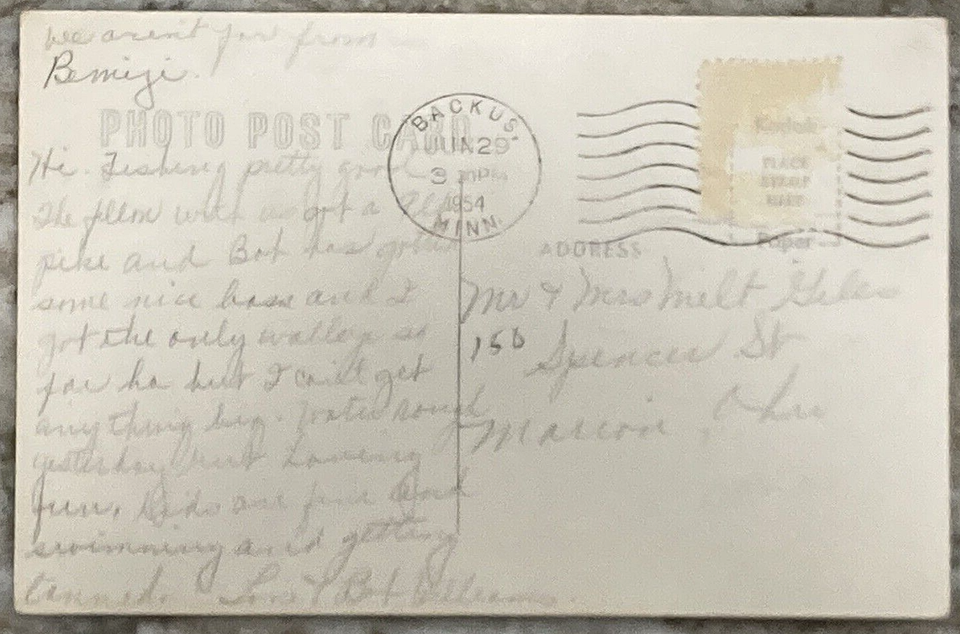 we aren't far from
Bemigi.
PHOTO POST CARD
Hi. Fishing pretty good
The fellow with us got a
pike and Bob has gotten
some nice bass and I
got the only walleye so
far ha but I can't get
anything big. Water rough
yesterday but having
fun. Kids are fine and
swimming and getting
tanned. & Bob Williams.
BACKUS.
JUN 29
3 PM
1954
MINN.
Kodak
PLACE
STAMP
HERE
Paper
ADDRESS
Mr & Mrs Milt Giles
156 Spencer St
Marion, Ohio